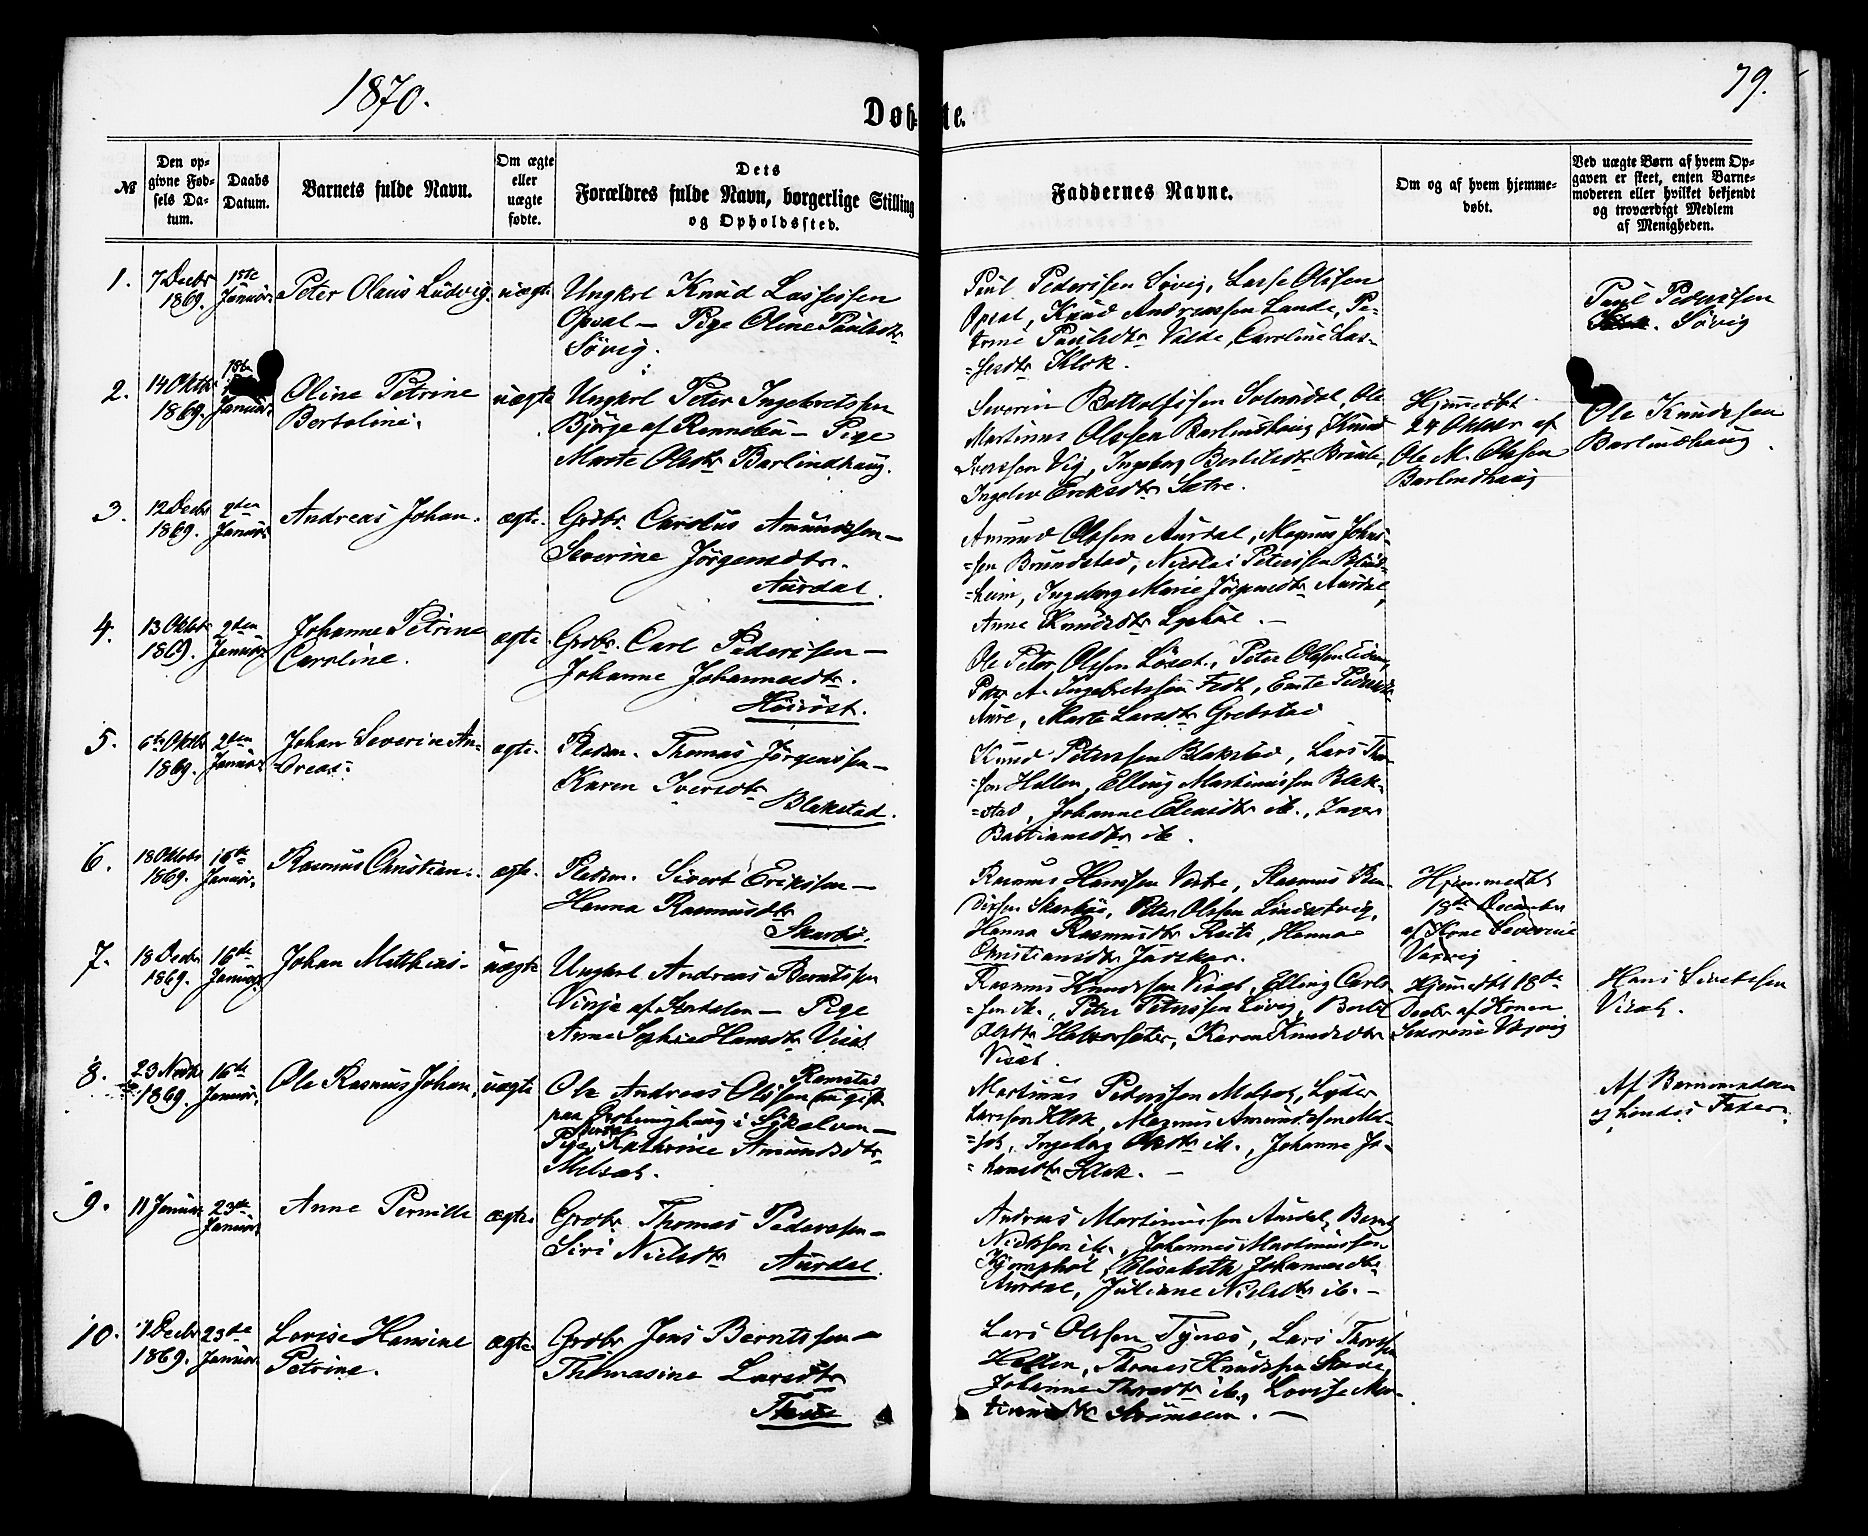 1870.
79.
Døbte.
№
Den opgivne Fødsels Datum.
Daabs Datum.
Barnets fulde Navn.
Om ægte eller uægte fødte.
Dets Forældres fulde Navn, borgerlige Stilling og Opholdssted.
Faddernes Navne.
Om og af hvem hjemmedøbt.
Ved uægte Børn af hvem Opgaven er skeet, enten Barnemoderen eller hvilket bekjendt og troværdigt Medlem af Menigheden.
1.
7 Decbr 1869.
1ste Januar
Peter Olaus Ludvig
uægte
Ungkrl Knud Lassessen
Opsal — Pige Oline Paulsdtr
Søvig.
Paul Pederssen Søvig, Lasse Olssen
Opsal, Knud Andreassen Lande, Pe-
trine Paulsdtr Valde, Caroline Las-
=sesdtr Klok.
Paul Pederssen
Søvig
2.
14 Oktbr 1869.
1ste Januar
Oline Petrine
Bertoline.
uægte
Ungkrl Peter Ingebretssen
Bjørge af Rennebu — Pige
Marte Olsdtr Barlindhaug.
Severin Bottolfssen Solnørdal, Ole
Martinus Olssen Barlindhaug, Knud
Iverssen Vig, Ingeborg
Eriksdtr Sætre.
Hjemmedbt
24 Oktober af
Ole M. Olssen
Barlindhaug
Ole Knudssen
Barlindhaug
3.
12 Decbr 1869.
2den Januar
Andreas Johan.
ægte.
Grdbr. Carolus Amundssen —
Severine Jørgensdtr.
Aurdal.
Amund Olssen Aurdal, Magnus Johns-
=sen Brundstad, Nicolai Peterssen Blind-
=heim, Ingeborg Marie Jørgensdtr Aurdal,
Anne Knudsdtr
4.
13 Oktbr 1869.
2den Januar
Johanne Petrine
Caroline.
ægte.
Grdbr. Carl Pederssen —
Johanne Johannesdtr.
Ole Peter Olssen Løset, Peter Olssen
Peter A. Ingebretssen Fedt,
Aure, Marte Larsdtr Grebstad
5.
6te Oktbr 1869.
2den Januar
Johan Severin An-
=dreas.
ægte.
Pladsm. Thomas Jørgenssen —
Karen Iversdtr
Blakstad.
Knud Peterssen Blakstad, Lars Tho-
=sen Hollen, Elling Martinussen Blak-
=stad, Johanne Eliasdtr ib., Inger
Bastiansdtr ib.
6.
18 Oktbr 1869.
16de Januar
Rasmus Christian.
ægte.
Pladsm. Sivert Erikssen —
Hanna Rasmusdtr
Skarbø.
Rasmus Hanssen Vestre, Rasmus Ben-
dixsen Skarbø, Peter Olssen Lindsetvig,
Hanna Rasmusdtr Reite, Hanna
Christiansdtr
Hjemmedbt
18de December
af Kone Severine
7.
18 Decbr 1869.
16de Januar
Johan Mathias.
uægte
Ungkrl Andreas Berntssen
Vinje af — Pige
Anne Sophie Hansdtr Viset
Rasmus Knudssen Viset, Elling Carls-
=sen ib., Peter Peterssen Løvig,
Olsdtr Haavorsæter, Karen Knudsdtr
Viset.
Hjemmedbt 18de
Decbr af Konen
Severine
Hans Sivertssen
Viset.
8.
23 Novbr 1869.
16de Januar
Ole Rasmus Johan
uægte
Ole Andreas Olssen Ramstad (ugift
paa i Sykelven —
Pige Kathrine Amundsdtr
Melsæt.
Martinus Pederssen Melsæt, Lyder
Larssen Klok, Magnus Amundssen Mel-
=sæt, Ingeborg Olsdtr ib., Johanne Jo-
=hansdtr Klok. —
Af Barnemoderen
og hendes Fader.
9.
11 Januar
23de Januar
Anne Pernille
ægte.
Grdbr. Thomas Pederssen —
Siri Nielsdtr
Aurdal.
Andreas Martinussen Aurdal, Bernt
Nielssen ib., Johannes Martinussen
Elisabeth Johannesdtr
Aurdal, Juliane Nielsdtr ib. —
10.
7 Decbr 1869.
23de Januar
Lovise Hansine
Petrine.
ægte.
Grdbr Jens Berntssen —
Thomasine Larsdtr
Lars Olssen Tynes, Lars
Hollen, Thomas Knudssen
Johanne ib., Lovise Mar-
tinusdtr Strømmen. —